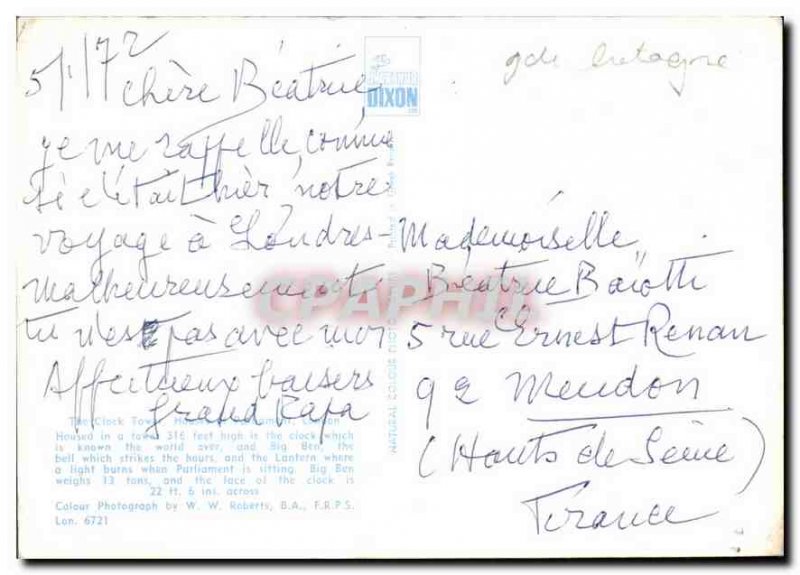 5/1/72
Chère Béatrice,
je me rappelle, comme
si c'était hier, notre
voyage à Londres -
malheureusement
tu n'es pas avec moi
Affectueux baisers
Grand Papa
The Clock Tower, Houses of Parliament, London
Housed in a tower 316 feet high is the clock which
is known the world over, and Big Ben, the
bell which strikes the hours, and the Lantern where
a light burns when Parliament is sitting. Big Ben
weighs 13 tons, and the face of the clock is
22 ft. 6 ins. across
Colour Photograph by W. W. Roberts, B.A., F.R.P.S.
Lon. 6721
DIXON
NATURAL COLOUR
CPAPHIL
gde bretagne
Mademoiselle
Béatrice Baïotti
5 rue Ernest Renan
92 Meudon
(Hauts de Seine)
France